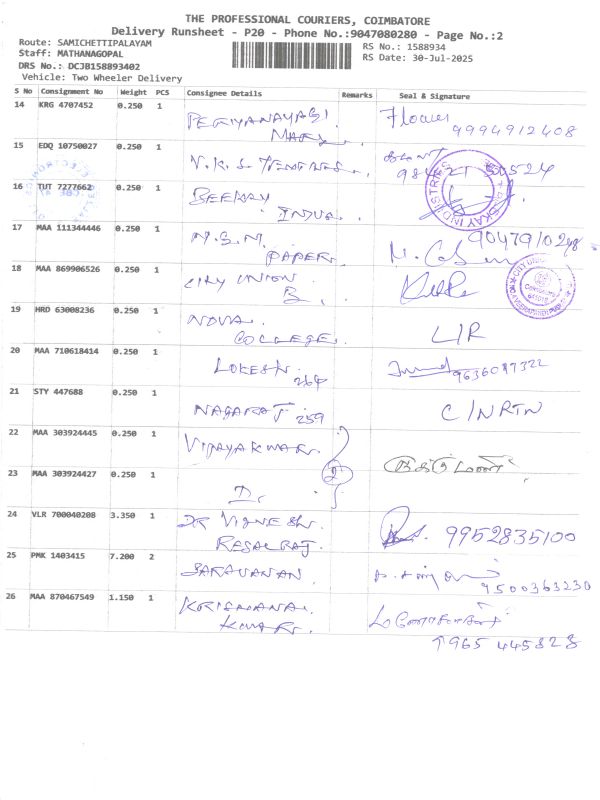 THE PROFESSIONAL COURIERS, COIMBATORE
Delivery Runsheet - P20 - Phone No.:9047080280 - Page No.:2
Route: SAMICHETTIPALAYAM
Staff: MATHANAGOPAL
RS No.: 1588934
DRS No.: DCJB158893402
RS Date: 30-Jul-2025
Vehicle: Two Wheeler Delivery
S No Consignment No Weight PCS Consignee Details Remarks Seal & Signature
14 KRG 4707452 0.250 1 PERIYANAYAGI Flower
9994912408
15 EDQ 10750027 0.250 1
16 TUT 7277662 0.250 1 BEEKAY
INDUA.
17 MAA 111344446 0.250 1 N.S.N. 
PAPER
18 MAA 869906526 0.250 1 CITY UNION
B.
19 HRD 63008236 0.250 1 NOVA
COLLEGE. L/R
20 MAA 710618414 0.250 1 LOKESH.
264 9636087322
21 STY 447688 0.250 1 NAGARAJ 259 C/NRTN
22 MAA 303924445 0.250 1 VIJAYAKUMAR.
2
23 MAA 303924427 0.250 1 D.
24 VLR 700040208 3.350 1 DR VIGNESH. 9952835100
25 PMK 1403415 7.200 2 SARAVANAN.
9500363230
26 MAA 870467549 1.150 1 KRISHNANA
KUMAR.